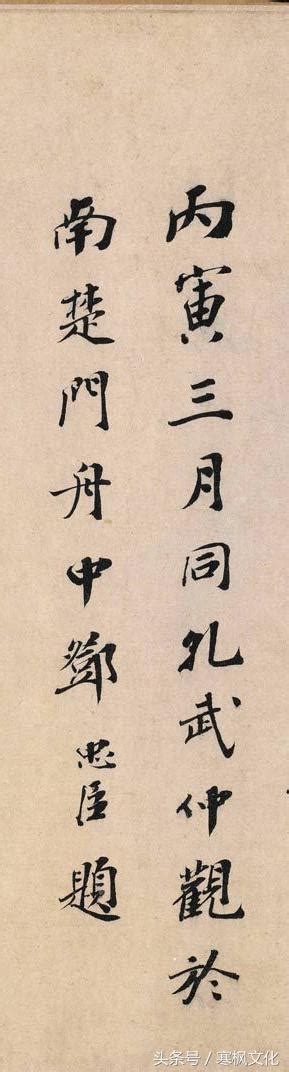 丙寅三月同孔武仲觀於
南楚門舟中鄧忠臣題
头条号／寒枫文化